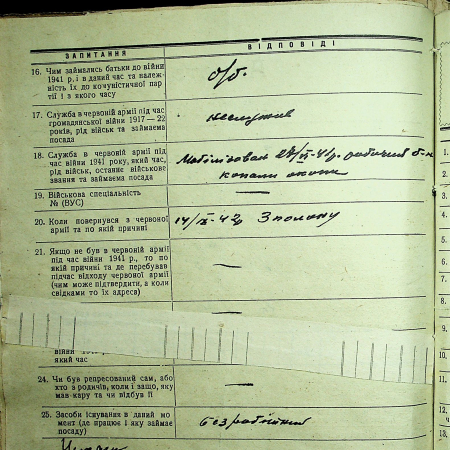 ЗАПИТАННЯ
ВІДПОВІДІ
16. Чим займались батьки до війни
1941 р. і в даний час та належ-
ність їх до комуністичної пар-
тії і з якого часу
б/б.
17. Служба в червоній армії під час
громадянської війни 1917—22
років, рід військ та займаєма
посада
неслужив
18. Служба в червоній армії під
час війни 1941 року, який час,
рід військ, останнє військове
звання та займаєма посада
Мобілізован робочий б-н
копали окопи
19. Військова спеціальність
№ (ВУС)
20. Коли повернувся з червоної
армії та по якій причині
З полону
21. Якщо не був в червоній армії
під час війни 1941 р., то по
якій причині та де перебував
підчас відходу червоної армії
(чим може підтвердити, а коли
свідками то їх адреса)
який час
24. Чи був репресований сам, або
хто з родичів, коли і защо, яку
мав кару та чи відбув її
25. Засоби існування в даний мо-
мент (де працює і яку займає
посаду)
безробітний
1.
2.
3.
4.
5.
6.
7.
8.
9.
10.
11.
12.
13.